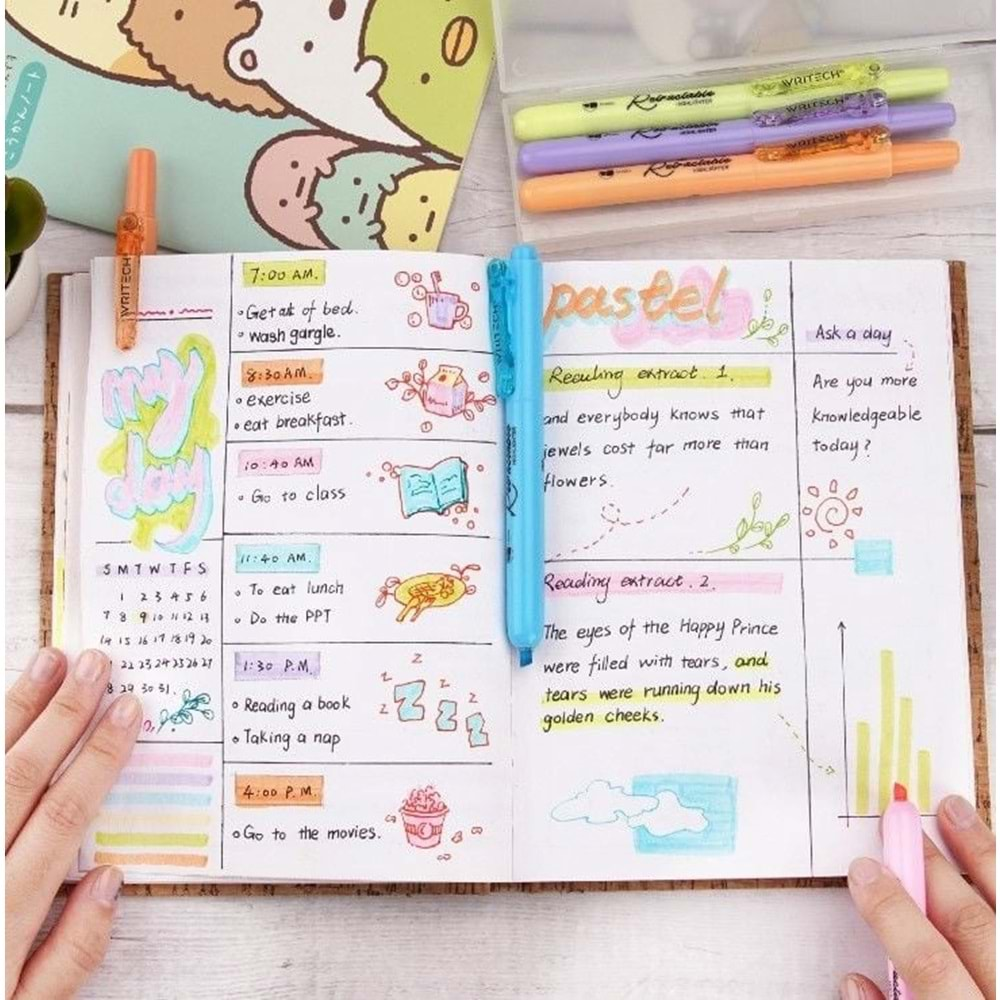 こうかんノート
WRITECH
Retractable
HIGHLIGHTER
WRITECH
Retractable
HIGHLIGHTER
WRITECH
Retractable
HIGHLIGHTER
WRITECH
my
day
S M T W T F S
1 2 3 4 5 6
7 8 9 10 11 12 13
14 15 16 17 18 19 20
22 23 24 25 26 27
8 29 30 31.
7:00 AM.
Get out of bed.
wash gargle.
8:30 AM.
exercise
eat breakfast.
10:40 AM
Go to class
11:40 AM.
To eat lunch
Do the PPT
1:30 P.M.
Reading a book
Taking a nap
z
z
z
z
Z
Z
Z
4:00 P.M.
Go to the movies.
WRITECH
Retractable
HIGHLIGHTER
pastel
Reading extract. 1.
and everybody knows that
jewels cost far more than
flowers.
Reading extract. 2.
The eyes of the Happy Prince
were filled with tears, and
tears were running down his
golden cheeks.
Ask a day
Are you more
knowledgeable
today?